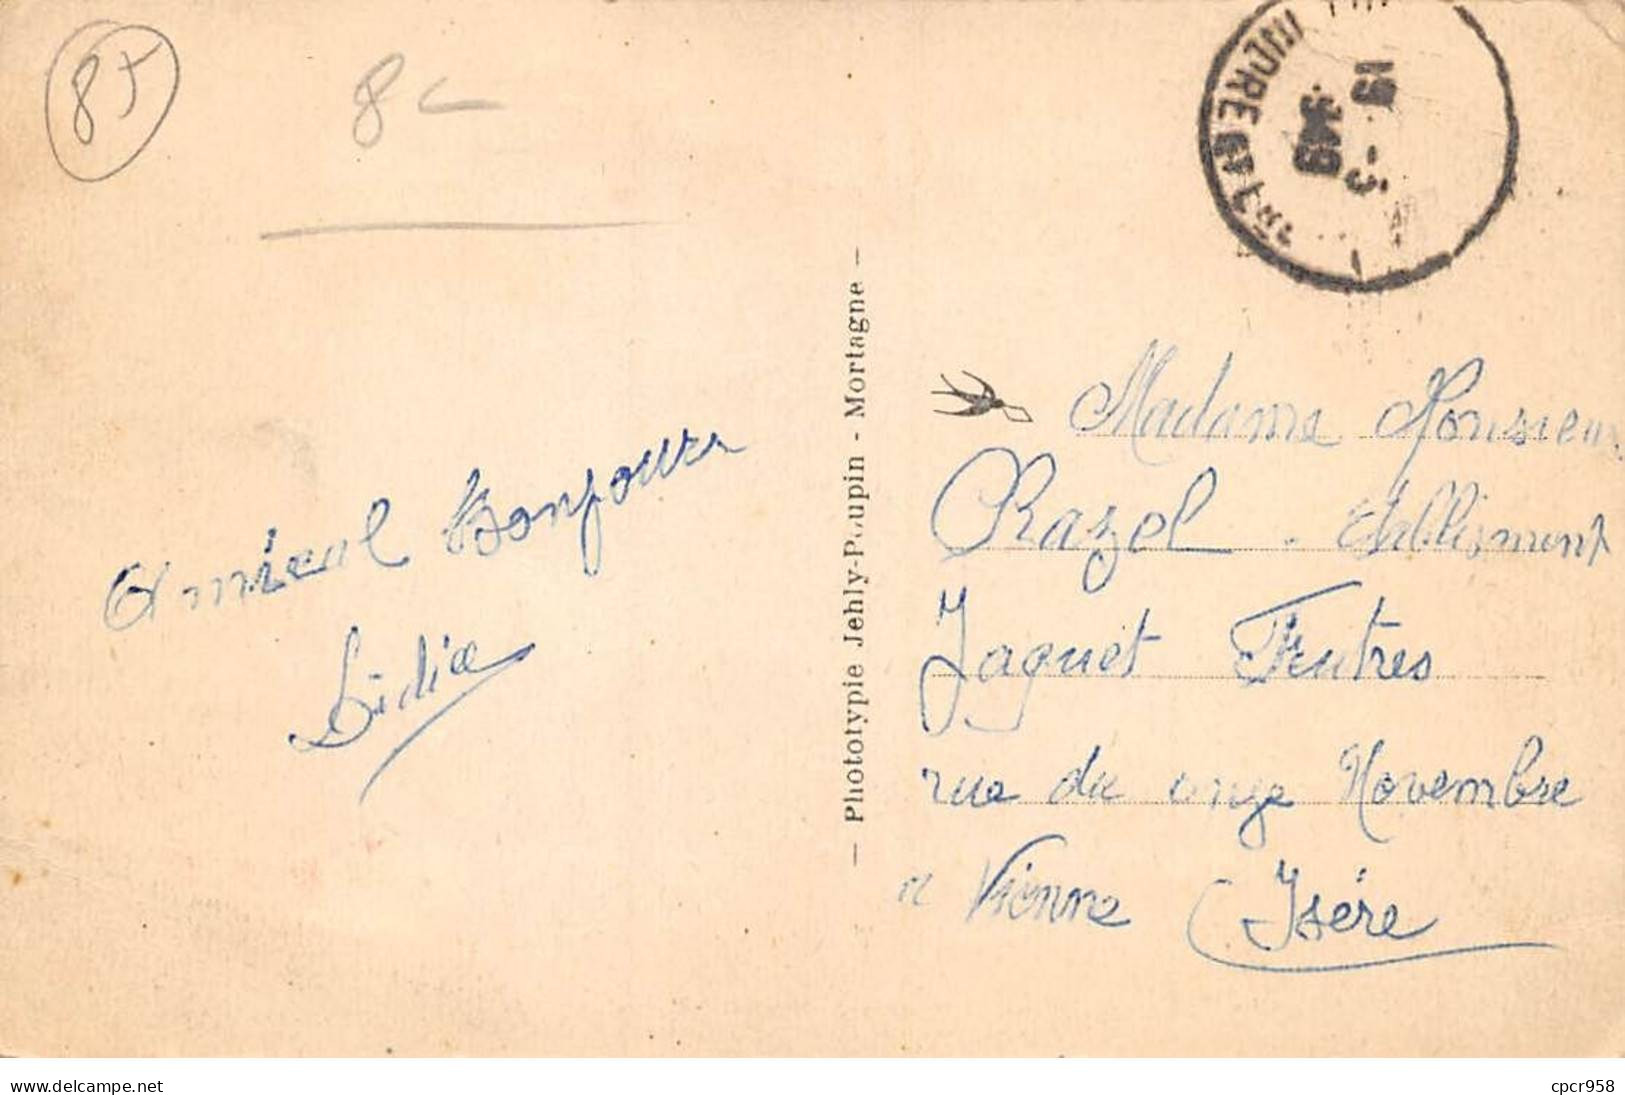 85
8
Amical Bonjours
Lidia
— Phototypie Jehly-Poupin - Mortagne —
19
Madame Monsieur
Razel. Etablisment
Jaquet Frutres
rue du onze Novembre
a Vienne (Isére
www.delcampe.net
cpcr958